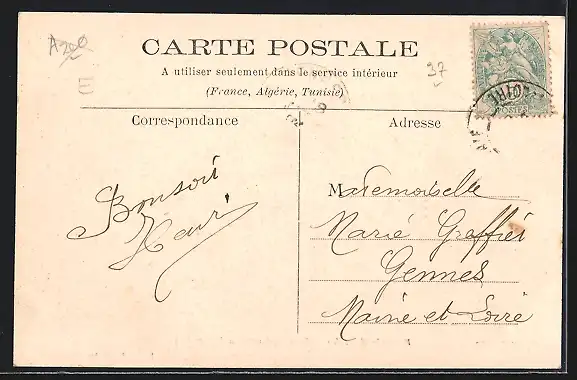 CARTE POSTALE
A utiliser seulement dans le service intérieur
(France, Algérie, Tunisie)
37
Correspondance
Adresse
Bonsoir
Henri
Mademoiselle
Marie Graffier
Gennes
Maine et Loire
POSTES